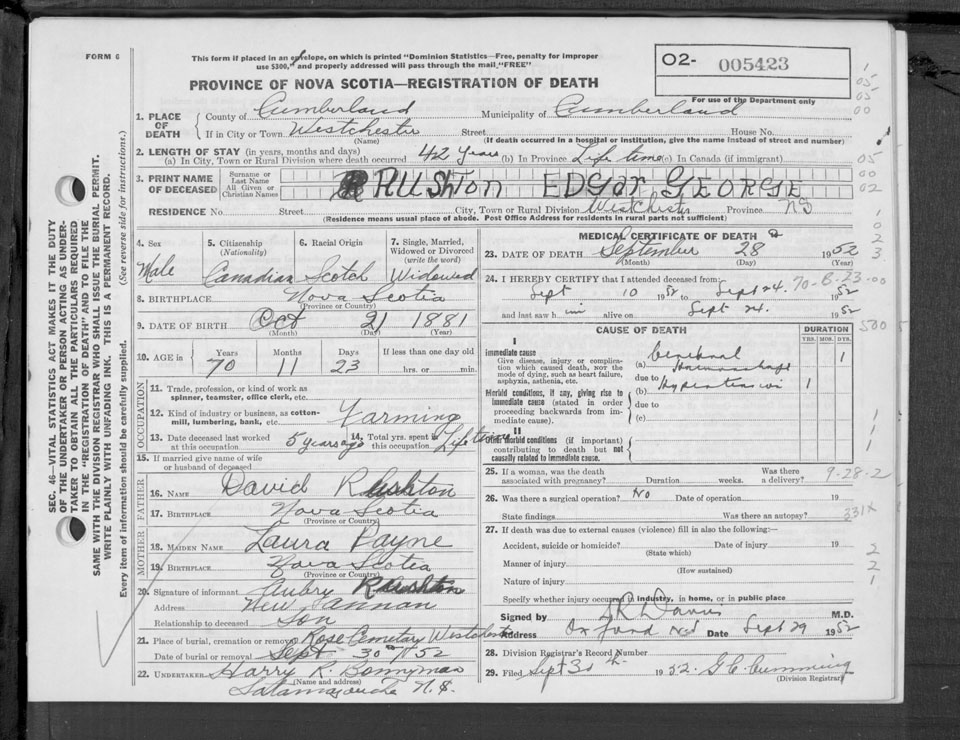 FORM 6
This form if placed in an envelope, on which is printed "Dominion Statistics—Free, penalty for improper
use $300," and properly addressed will pass through the mail "FREE"
O2- 005423
PROVINCE OF NOVA SCOTIA—REGISTRATION OF DEATH
For use of the Department only
1. PLACE OF DEATH County of Cumberland Municipality of Cumberland
If in City or Town Westchester Street House No.
(Name) (If death occurred in a hospital or institution, give the name instead of street and number)
2. LENGTH OF STAY (in years, months and days)
(a) In City, Town or Rural Division where death occurred 42 years (b) In Province Life time (c) In Canada (if immigrant)
3. PRINT NAME OF DECEASED Surname or Last Name All Given or Christian Names RUSHTON EDGAR GEORGE
RESIDENCE No. Street City, Town or Rural Division Westchester Province NS
(Residence means usual place of abode. Post Office Address for residents in rural parts not sufficient)
4. Sex 5. Citizenship (Nationality) 6. Racial Origin 7. Single, Married, Widowed or Divorced (write the word)
Male Canadian Scotch Widowed
8. BIRTHPLACE Nova Scotia
(Province or Country)
9. DATE OF BIRTH Oct 21 1881
(Month) (Day) (Year)
10. AGE in Years Months Days If less than one day old
70 11 23 hrs. or min.
OCCUPATION
11. Trade, profession, or kind of work as
spinner, teamster, office clerk, etc.
12. Kind of industry or business, as cotton-
mill, lumbering, bank, etc. Farming
13. Date deceased last worked at this occupation 5 years ago 14. Total yrs. spent in this occupation Life time
15. If married give name of wife
or husband of deceased
FATHER
16. NAME David Rushton
17. BIRTHPLACE Nova Scotia
(Province or Country)
MOTHER
18. MAIDEN NAME Laura Payne
19. BIRTHPLACE Nova Scotia
(Province or Country)
20. Signature of informant Aubry Rushton
Address New Annan
Relationship to deceased Son
21. Place of burial, cremation or removal Rose Cemetary Westchester
Date of burial or removal Sept 30 1952
22. UNDERTAKER Harry R. Bonnyman
(Name and address)
Tatamagouche N.S.
MEDICAL CERTIFICATE OF DEATH
23. DATE OF DEATH September 28 1952
(Month) (Day) (Year)
24. I HEREBY CERTIFY that I attended deceased from:
Sept 10 1952 to Sept 24. 1952
70-B-23-00
and last saw h im alive on Sept 24. 1952
CAUSE OF DEATH DURATION
YRS. MOS. DYS.
I
Immediate cause
Give disease, injury or complication which caused death, not the mode of dying, such as heart failure, asphyxia, asthenia, etc.
(a) Cerebral Haemorrhage 1
due to
Morbid conditions, if any, giving rise to immediate cause (stated in order proceeding backwards from immediate cause).
(b) Hypertension 1
due to
(c)
II
Other morbid conditions (if important) contributing to death but not causally related to immediate cause.
25. If a woman, was the death associated with pregnancy? Duration weeks. Was there a delivery?
9-28-2
26. Was there a surgical operation? No Date of operation 19
State findings Was there an autopsy?
331X
27. If death was due to external causes (violence) fill in also the following:—
Accident, suicide or homicide? Date of injury 19
(State which)
Manner of injury
(How sustained)
Nature of injury
Specify whether injury occurred in industry, in home, or in public place
Signed by M.D.
Address Oxford NS Date Sept 29 1952
28. Division Registrar's Record Number
29. Filed Sept 30th 1952. G.C. Cumming
(Division Registrar)
SEC. 46—VITAL STATISTICS ACT MAKES IT THE DUTY
OF THE UNDERTAKER OR PERSON ACTING AS UNDER-
TAKER TO OBTAIN ALL THE PARTICULARS REQUIRED
IN THE "REGISTRATION OF DEATH" AND TO FILE THE
SAME WITH THE DIVISION REGISTRAR WHO SHALL ISSUE THE BURIAL PERMIT.
WRITE PLAINLY WITH UNFADING INK. THIS IS A PERMANENT RECORD.
Every item of information should be carefully supplied. (See reverse side for instructions.)